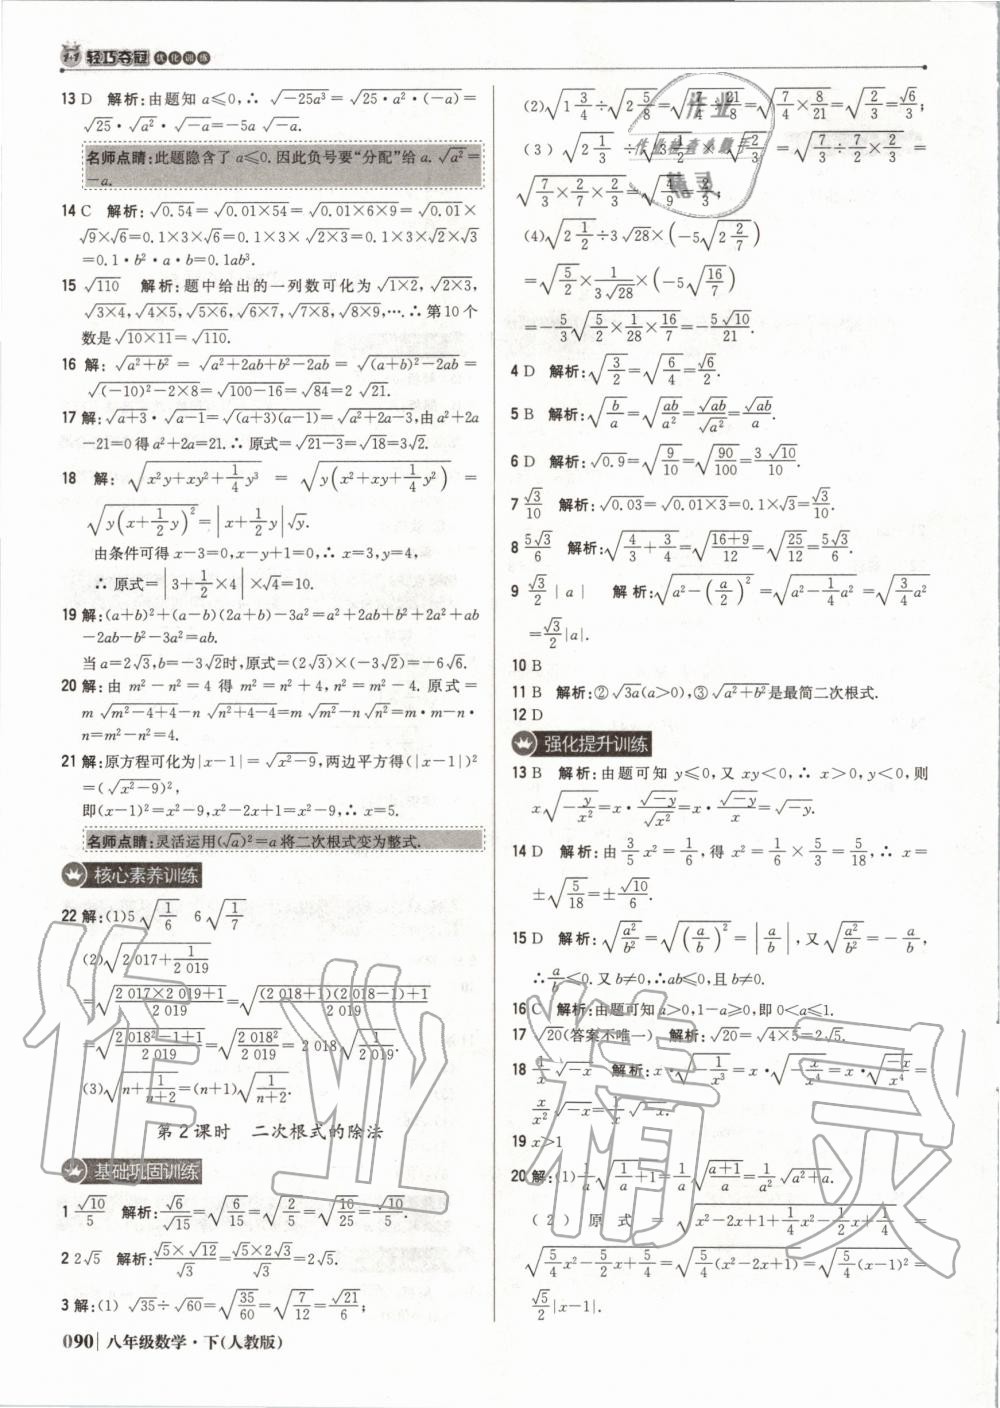 1+1 轻巧夺冠 优化训练
13 D 解析:由题知 a≤0,∴ √(-25a³) = √(25·a²·(-a)) =
√25·√a²·√-a=-5a √-a.
名师点睛:此题隐含了 a≤0.因此负号要“分配”给 a. √a² =
-a.
14 C 解析:√0.54=√(0.01×54)=√(0.01×6×9)=√0.01×
√9×√6=0.1×3×√6=0.1×3×√(2×3)=0.1×3×√2×√3
=0.1·b²·a·b=0.1ab³.
15 √110 解析:题中给出的一列数可化为 √(1×2),√(2×3),
√(3×4),√(4×5),√(5×6),√(6×7),√(7×8),√(8×9),…∴第10个
数是√(10×11)=√110.
16 解: √(a²+b²) = √(a²+2ab+b²-2ab) = √((a+b)²-2ab) =
√((-10)²-2×8)=√(100-16)=√84=2 √21.
17 解:√(a+3)·√(a-1)=√((a+3)(a-1))=√(a²+2a-3),由a²+2a
-21=0得a²+2a=21.∴原式=√(21-3)=√18=3√2.
18 解: √(x²y+xy²+1/4 y³) = √(y(x²+xy+1/4 y²)) =
√(y(x+1/2 y)²)=|x+1/2 y|√y.
由条件可得x-3=0,x-y+1=0,∴x=3,y=4,
∴原式=|3+1/2×4|×√4=10.
19 解:(a+b)²+(a-b)(2a+b)-3a²=a²+2ab+b²+2a²+ab
-2ab-b²-3a²=ab.
当a=2√3,b=-3√2时,原式=(2√3)×(-3√2)=-6√6.
20 解:由 m²-n²=4 得 m²=n²+4,n²=m²-4.原式=
m √(m²-4+4)-n √(n²+4-4)=m √m²-n √n²=m·m-n·
n=m²-n²=4.
21 解:原方程可化为|x-1|=√(x²-9),两边平方得(|x-1|)²
=(√(x²-9))²,
即(x-1)²=x²-9,x²-2x+1=x²-9,∴x=5.
名师点睛:灵活运用(√a)²=a将二次根式变为整式.
核心素养训练
22 解:(1)5√(1/6) 6√(1/7)
(2)√(2 017+1/2 019)
=√((2 017×2 019+1)/2 019)=√(((2 018+1)(2 018-1)+1)/2 019)
=√((2 018²-1+1)/2 019)=√(2 018²/2 019)=2 018√(1/2 019).
(3)√(n+1/(n+2))=(n+1)√(1/(n+2)).
第2课时 二次根式的除法
基础巩固训练
1 √10/5 解析:√6/√15=√(6/15)=√(2/5)=√(10/25)=√10/5.
2 2√5 解析:(√5×√12)/√3=(√5×2√3)/√3=2√5.
3 解:(1) √35÷√60=√(35/60)=√(7/12)=√21/6;
090 八年级数学·下(人教版)
(2)√(1 3/4)÷√(2 5/8)=√(7/4÷21/8)=√(7/4×8/21)=√(2/3)=√6/3;
(3) √(2 1/3)÷√(3 1/2)×√(2/3) = √(7/3÷7/2×2/3) =
√(7/3×2/7×2/3)=√(4/9)=2/3;
(4)√(2 1/2)÷3√28×(-5√(2 2/7))
=√(5/2)×1/(3√28)×(-5√(16/7))
=-5/3√(5/2×1/28×16/7)=-5√10/21.
4 D 解析:√(3/2)=√(6/4)=√6/2.
5 B 解析:√(b/a)=√(ab/a²)=√ab/√a²=√ab/a.
6 D 解析:√0.9=√(9/10)=√(90/100)=3√10/10.
7 √3/10 解析:√0.03=√(0.01×3)=0.1×√3=√3/10.
8 5√3/6 解析:√(4/3+3/4)=√((16+9)/12)=√(25/12)=5√3/6.
9 √3/2 |a| 解析:√(a²-(a/2)²)=√(a²-1/4 a²)=√(3/4 a²)
=√3/2|a|.
10 B
11 B 解析:②√3a(a>0),③√(a²+b²)是最简二次根式.
12 D
强化提升训练
13 B 解析:由题可知 y≤0,又 xy<0,∴x>0,y<0,则
x√(-y/x²)=x·√-y/√x²=x·√-y/x=√-y.
14 D 解析:由 3/5 x²=1/6,得 x²=1/6×5/3=5/18,∴x=
±√(5/18)=±√10/6.
15 D 解析:√(a²/b²)=√((a/b)²)=|a/b|,又√(a²/b²)=-a/b,
∴a/b≤0.又b≠0,∴ab≤0,且b≠0.
16 C 解析:由题可知a>0,1-a≥0,即0<a≤1.
17 √20(答案不唯一) 解析:√20=√(4×5)=2√5.
18 1/x √-x 解析:x·√(-1/x³)=x·√(-x/x⁴)=x·√-x/√x⁴=
x/x² √-x=1/x √-x.
19 x>1
20 解:(1)1/a√(1/a+1)=1/a√((a+1)/a)=1/a²√(a²+a).
(2)原式=√(x²-2x+1+1/4 x²-1/2 x+1/4)=
√(5/4 x²-5/2 x+5/4)=√(5/4(x²-2x+1))=√(5/4(x-1)²)=
√5/2|x-1|.
作业
作业检查小助手
精灵
作业精灵